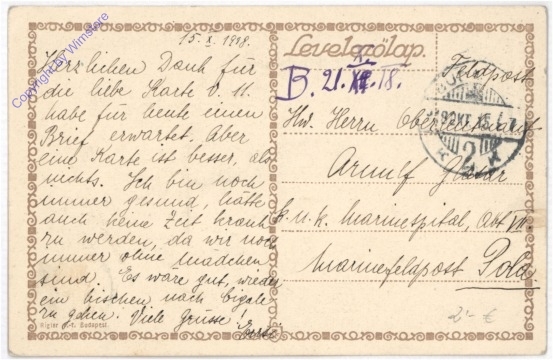 15. X. 1918.
Herzlichen Dank für
die liebe Karte v. 11.
habe für heute einen
Brief erwartet. Aber
eine Karte ist besser, als
nichts. Ich bin noch
immer gesund, hätte
auch keine Zeit krank
zu werden, da wir noch
immer ohne Mädchen
sind. Es wäre gut, wieder
ein bischen nach
zu gehen. Viele Grüsse!
Rigler r.-t. Budapest.
Levelezőlap.
Feldpost
B. 21. X. 18.
Herrn
Arnulf
k. u. k. Marinespital, Abt VII.
Marinefeldpost Pola
2'- €
Copyright by Wimstore